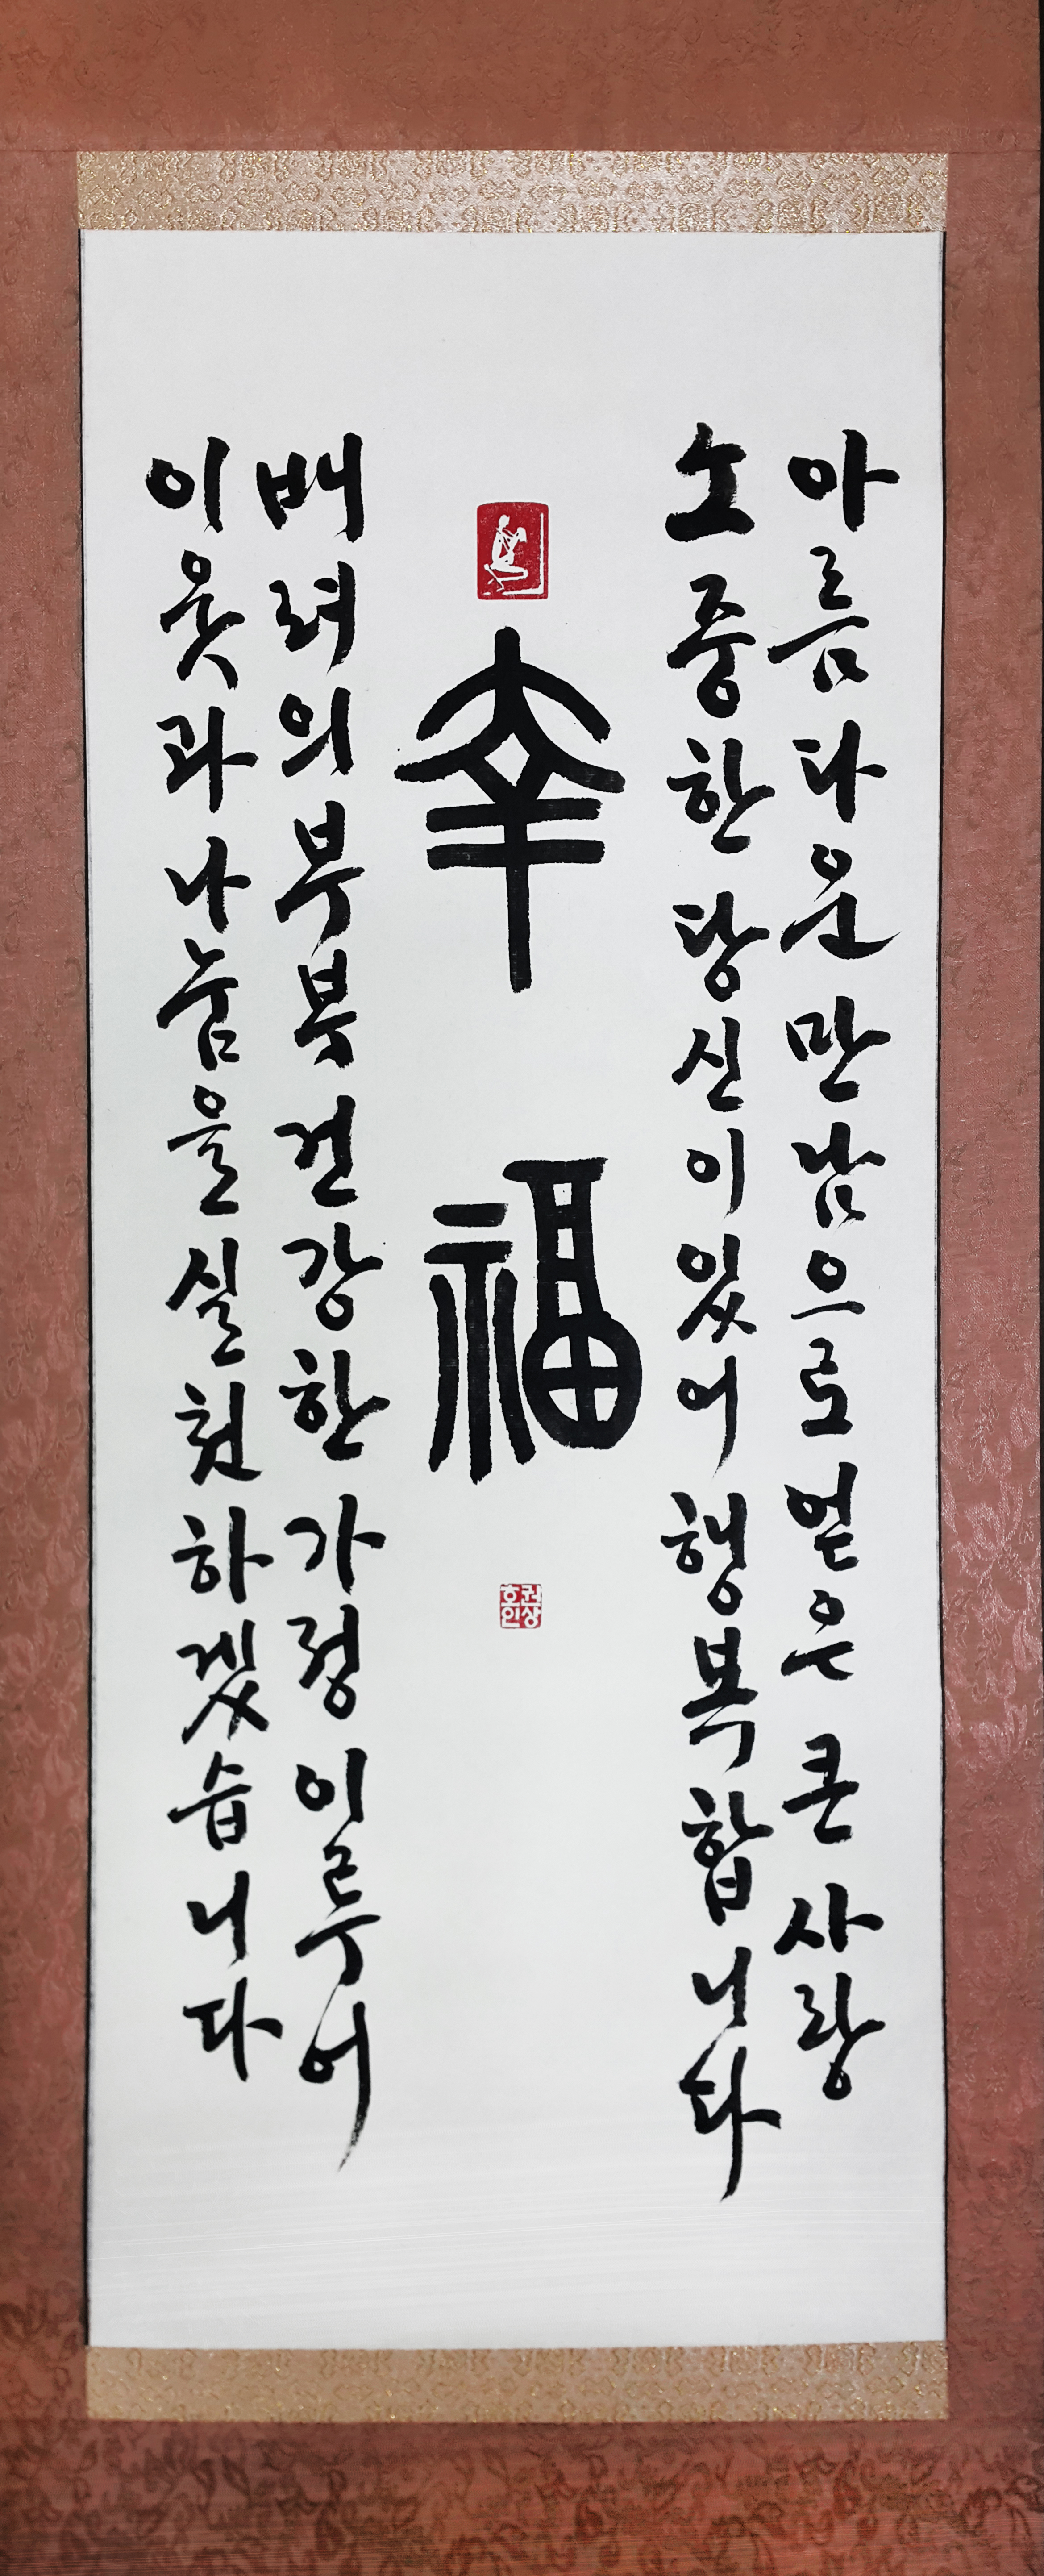 아름다운 만남으로 얻은 큰 사랑
소중한 당신이 있어 행복합니다
幸福
권상호인
배려의 부부 건강한 가정 이루어
이웃과 나눔을 실천하겠습니다